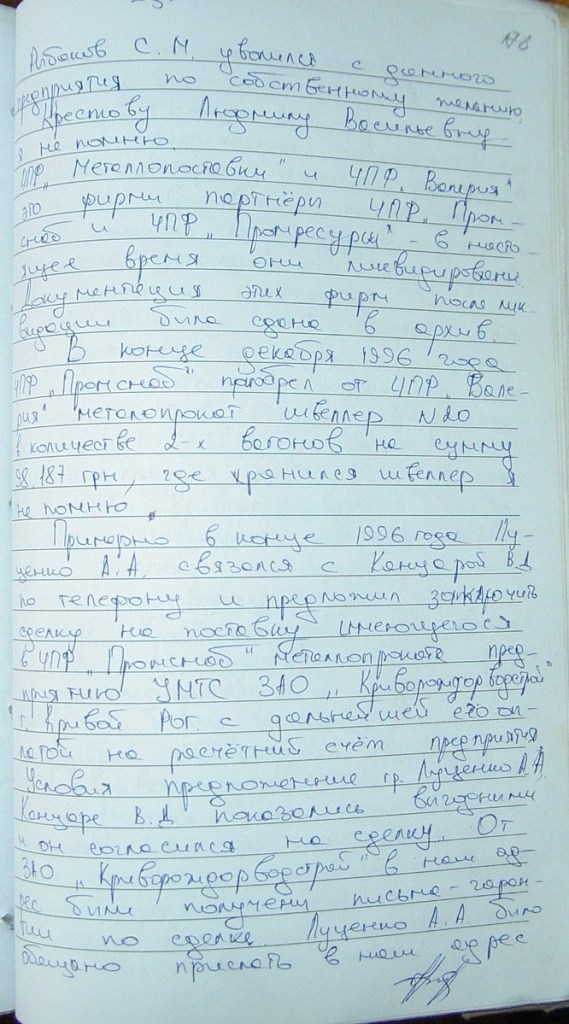 178
Рыбаков С. М. уволился с данного
предприятия по собственному желанию.
Крестову Людмилу Васильевну
я не помню.
ЧПФ „Металлопоставки" и ЧПФ „Валерия"
это фирмы партнёры ЧПФ „Пром-
снаб и ЧПФ „Промресурсы" - в насто-
ящее время они ликвидированы.
Документация этих фирм после лик-
видации была сдана в архив.
В конце декабря 1996 года
ЧПФ „Промснаб" приобрел от ЧПФ „Вале-
рия" металопрокат швеллер N20
в количестве 2-х вагонов на сумму
98.187 грн, где хранился швеллер я
не помню.
Примерно в конце 1996 года Лу-
ценко А.А. связался с Канцарой В.Д
по телефону и предложил заключить
сделку на поставку имеющегося
в ЧПФ „Промснаб" металлопроката пред-
приятию УМТС ЗАО „Криворождорводстрой"
г. Кривой Рог. с дальнейшей его оп-
латой на расчётный счёт предприятия.
Условия предложение гр. Луценко А.А.
Канцаре В.Д показались выгодными
и он согласился на сделку. От
ЗАО „Криворождорводстрой" в наш ад-
рес были получены письма-гаран-
тии по сделке. Луценко А.А. было
обещано прислать в наш адрес